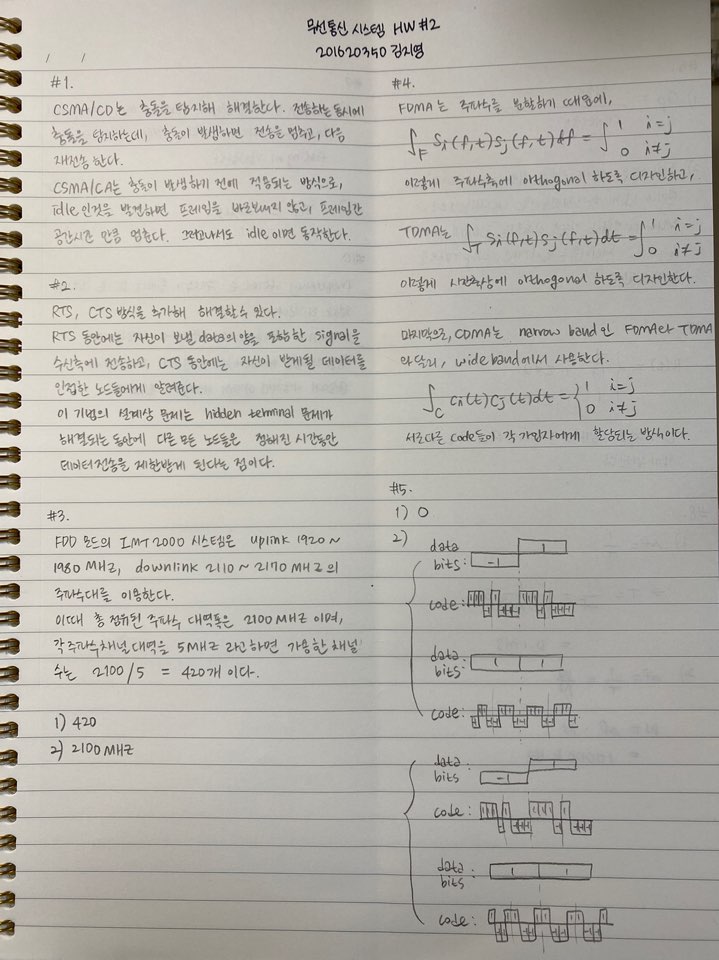 무선통신 시스템 HW #2
201620350 김지영
/ /
#1.
CSMA/CD는 충돌을 탐지해 해결한다. 전송하는 동시에
충돌을 탐지하는데, 충돌이 발생하면 전송을 멈추고, 다음
재전송 한다.
CSMA/CA는 충돌이 발생하기 전에 적용되는 방식으로,
idle 인것을 발견하면 프레임을 바로보내지 않고, 프레임간
공간시간 만큼 멈춘다. 그러고나서도 idle이면 동작한다.
#2.
RTS, CTS 방식을 추가해 해결할수 있다.
RTS 동안에는 자신이 보낼 data의 양을 포함한 signal을
수신측에 전송하고, CTS 동안에는 자신이 받게될 데이터를
인접한 노드들에게 알려준다.
이 기법의 설계상 문제는 hidden terminal 문제가
해결되는 동안에 다른 모든 노드들은 정해진 시간동안
데이터전송을 제한받게 된다는 점이다.
#3.
FDD 모드의 IMT 2000 시스템은 uplink 1920 ~
1980 MHz, downlink 2110 ~ 2170 MHz 의
주파수대를 이용한다.
이때 총 점유된 주파수 대역폭은 2100 MHz 이며,
각 주파수채널 대역을 5MHz 라고하면 가용한 채널
수는 2100/5 = 420개 이다.
1) 420
2) 2100 MHz
#4.
FDMA 는 주파수를 분할하기 때문에,
∫F Si(f,t)Sj(f,t)df = ∫ 1 i=j
0 i≠j
이렇게 주파수축에 orthogonal 하도록 디자인하고,
TDMA는 ∫T Si(f,t)Sj(f,t)dt = ∫ 1 i=j
0 i≠j
이렇게 시간축상에 orthogonal 하도록 디자인한다.
마지막으로, CDMA는 narrow band 인 FDMA와 TDMA
와 달리, wide band에서 사용한다.
∫C Ci(t)Cj(t)dt = { 1 i=j
0 i≠j
서로다른 code들이 각 가입자에게 할당되는 방식이다.
#5.
1) 0
2)
data
bits: -1 1
code:
data
bits: 1 1
code:
data
bits: -1 1
code:
data
bits: 1 1
code: